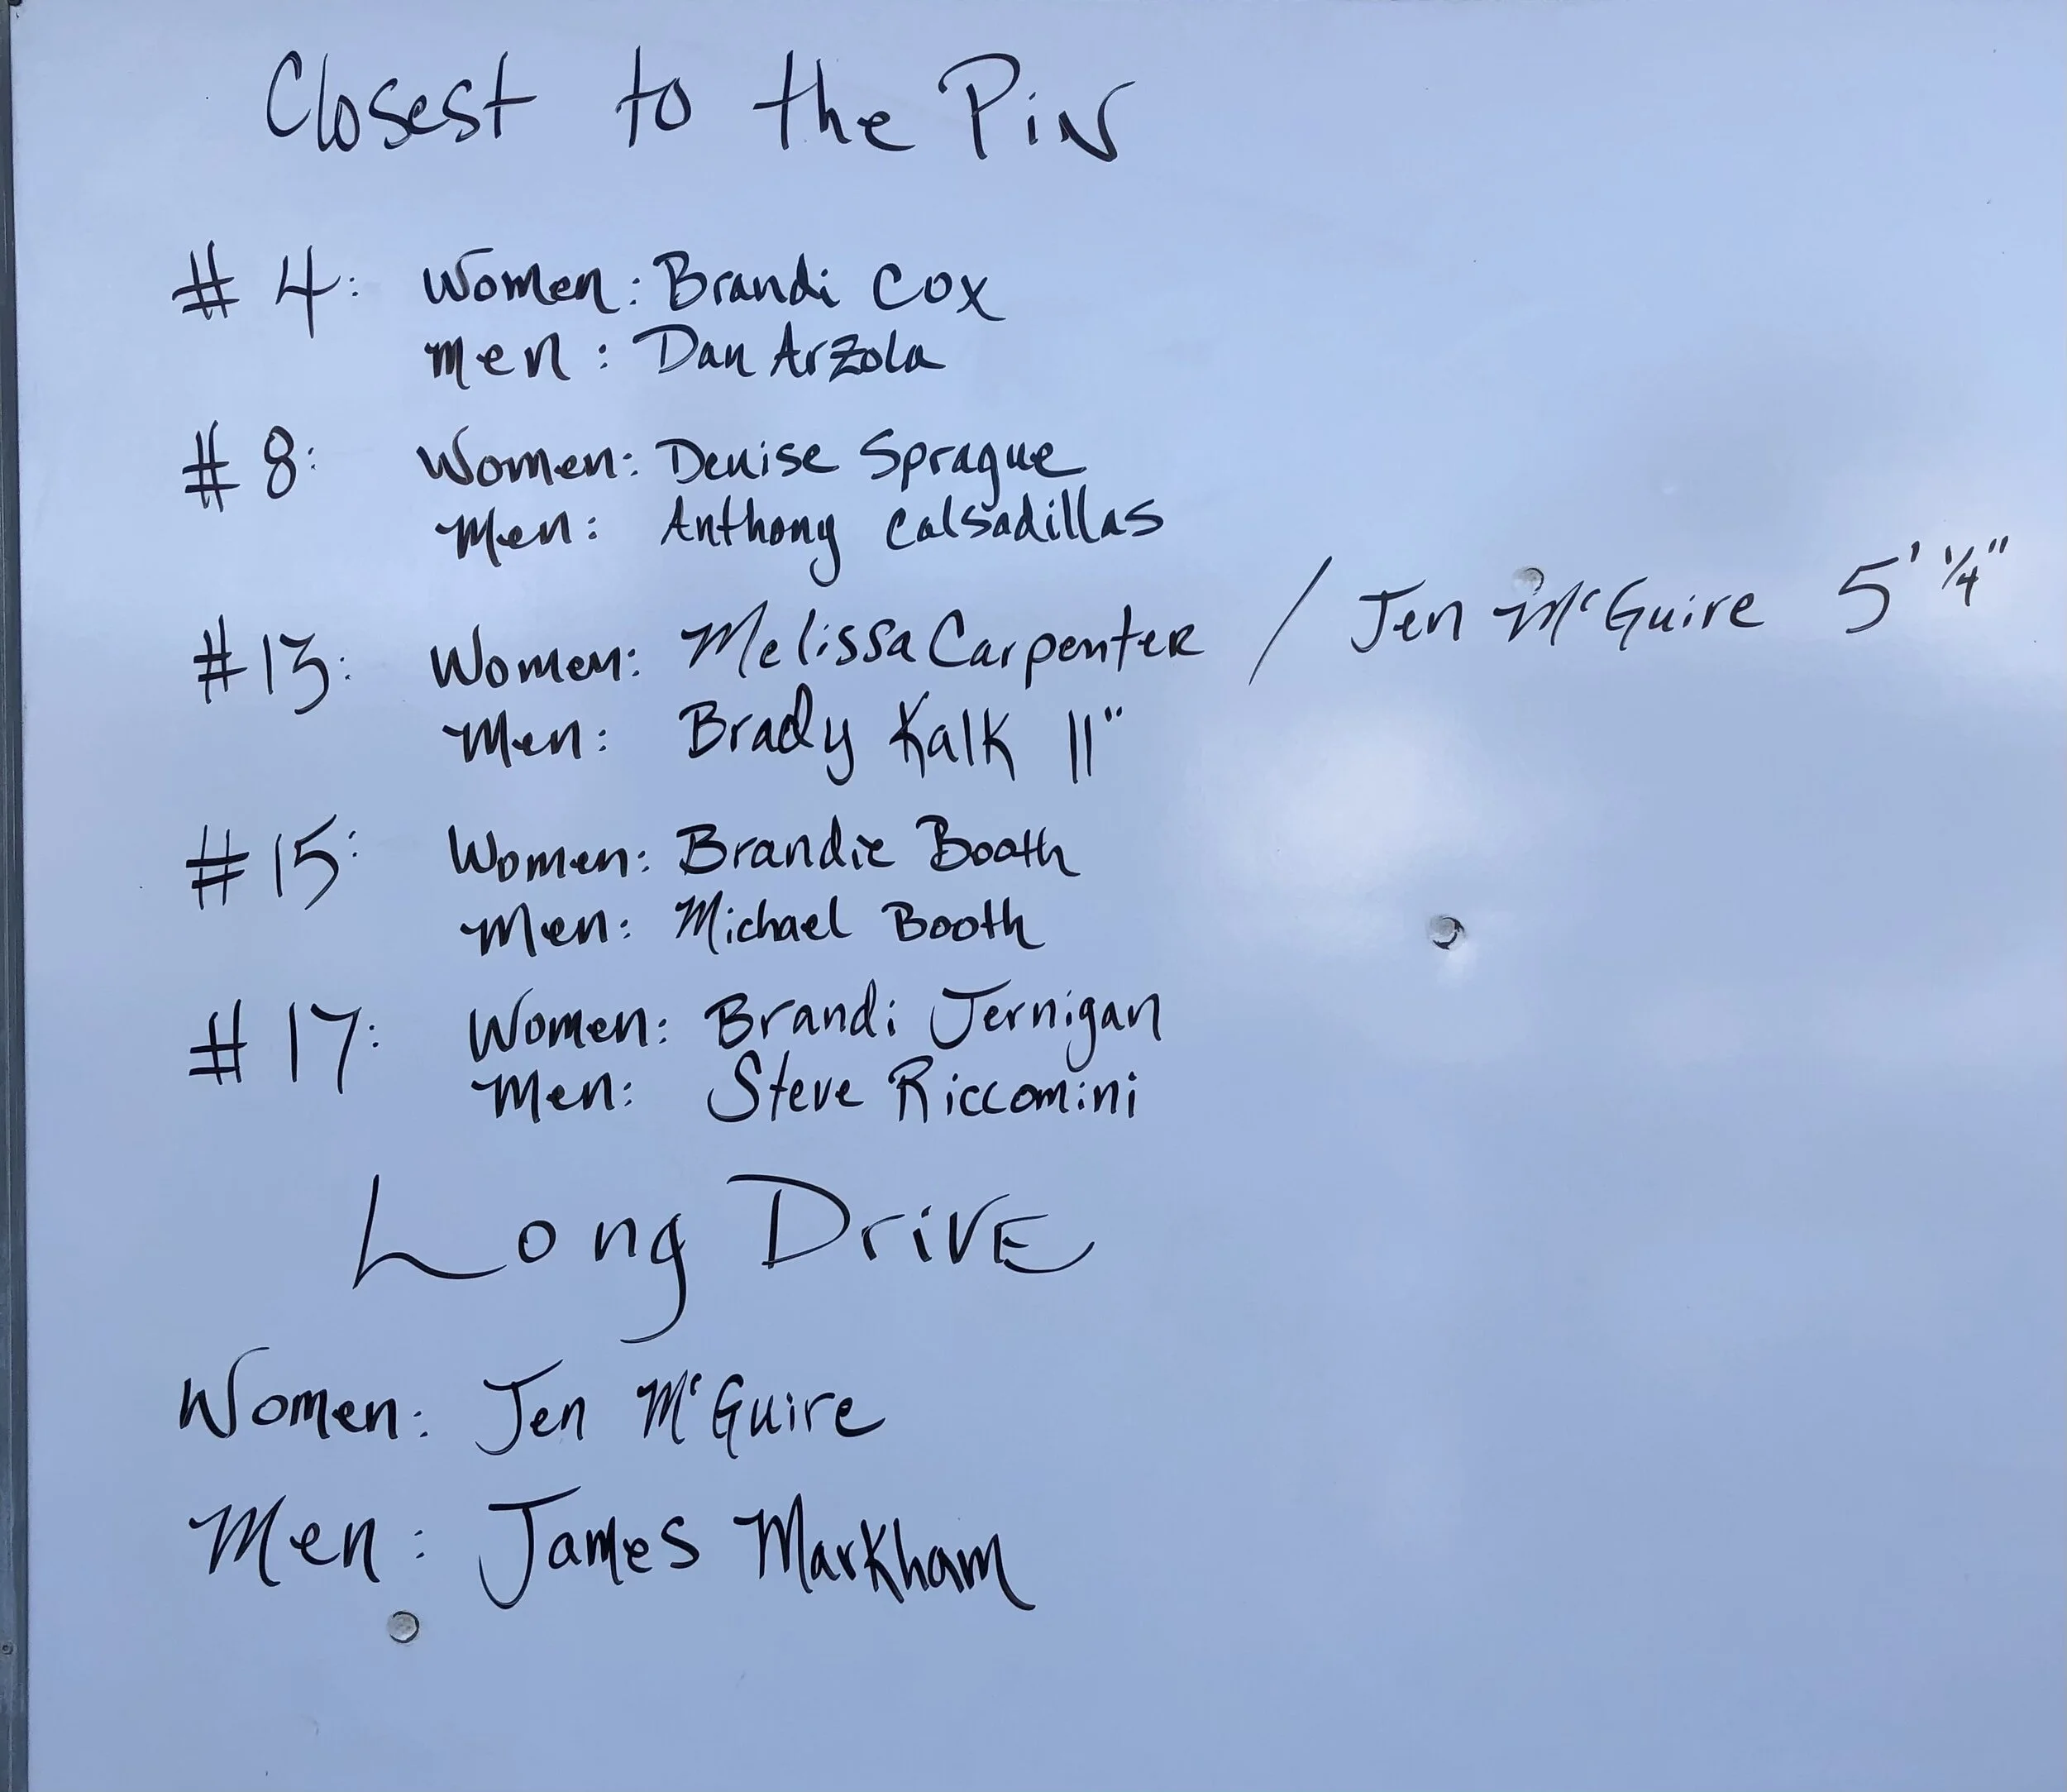 Closest to the Pin
# 4: Women: Brandi Cox
Men: Dan Arzola
# 8: Women: Denise Sprague
Men: Anthony Calsadillas
#13: Women: Melissa Carpenter / Jen McGuire 5' 1/4"
Men: Brady Kalk 11"
#15: Women: Brandie Booth
Men: Michael Booth
# 17: Women: Brandi Jernigan
Men: Steve Riccomini
Long Drive
Women: Jen McGuire
Men: James Markham